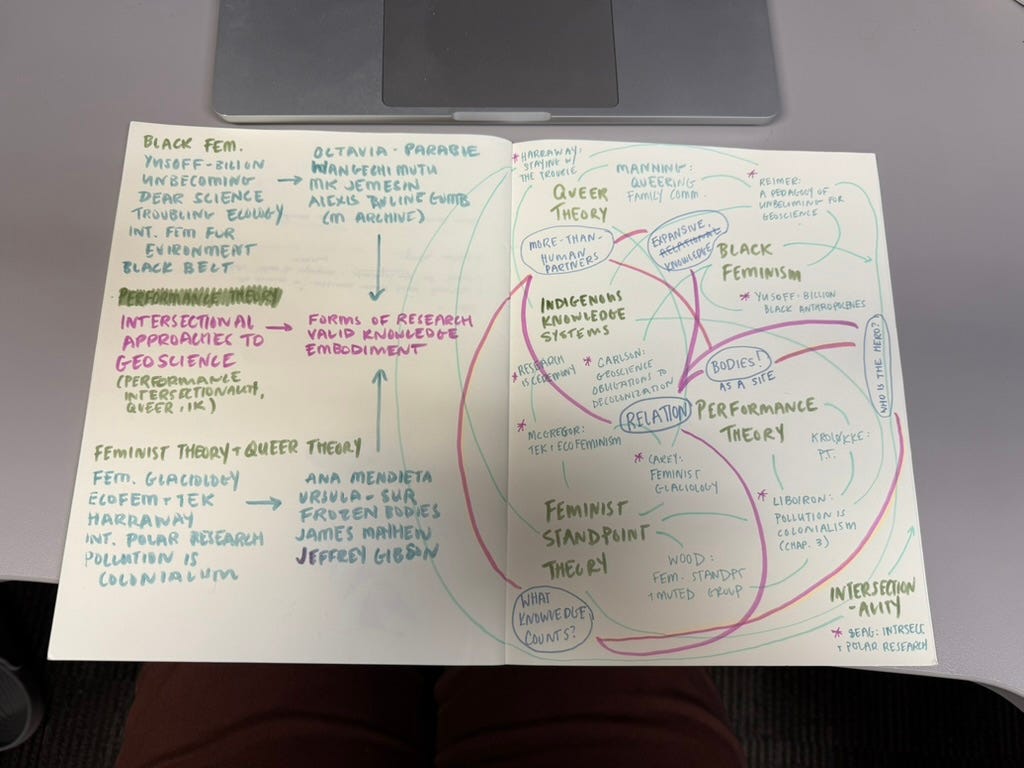 BLACK FEM.
YUSOFF - BILLION
UNBECOMING
DEAR SCIENCE
TROUBLING ECOLOGY
INT. FEM FUR
EVIRONMENT
BLACK BELT
OCTAVIA - PARABLE
WANGECHI MUTU
MK JEMESIN
ALEXIS PAULINE GUMB
(M ARCHIVE)
PERFORMANCE THEORY
INTERSECTIONAL
APPROACHES TO
GEOSCIENCE
(PERFORMANCE
INTERSECTIONALITY,
QUEER, IK)
FORMS OF RESEARCH
VALID KNOWLEDGE
EMBODIMENT
FEMINIST THEORY + QUEER THEORY
FEM. GLACIOLOGY
ECOFEM + TEK
HARRAWAY
INT. POLAR RESEARCH
POLLUTION IS
COLONIALUM
ANA MENDIETA
URSULA - SUR
FROZEN BODIES
JAMES
JEFFREY GIBSON
* HARRAWAY:
STAYING W/
THE TROUBLE
QUEER
THEORY
MANNING:
QUEERING
FAMILY COMM.
* REIMER:
A PEDAGOGY OF
UNBECOMING FOR
GEOSCIENCE
MORE-THAN-
HUMAN
PARTNERS
EXPANSIVE,
RELATIONAL
KNOWLEDGE
BLACK
FEMINISM
* YUSOFF: BILLION
BLACK ANTHROPOCENES
INDIGENOUS
KNOWLEDGE
SYSTEMS
* RESEARCH
IS CEREMONY
* CARLSON:
GEOSCIENCE
OBLIGATIONS TO
DECOLONIZATION
BODIES!
AS A SITE
WHO IS THE HERO?
RELATION
PERFORMANCE
THEORY
* MCGREGOR:
TEK + ECOFEMINISM
KROLØKKE:
P.T.
* CAREY:
FEMINIST
GLACIOLOGY
* LIBOIRON:
POLLUTION IS
COLONIALISM
(CHAP. 3)
FEMINIST
STANDPOINT
THEORY
WOOD:
FEM. STANDPT
+ MUTED GROUP
WHAT
KNOWLEDGE
COUNTS?
INTERSECTION
-ALITY
* SEAG: INTRSECC
+ POLAR RESEARCH